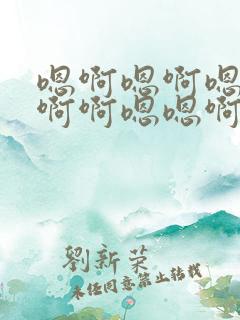 嗯啊嗯啊嗯
啊啊嗯嗯啊
劉新荣
未经同意禁止转载